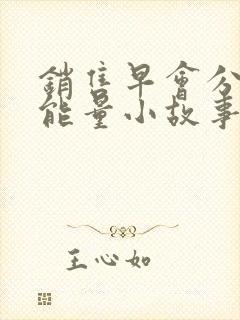 銷售早會分
能量小故事
王心如